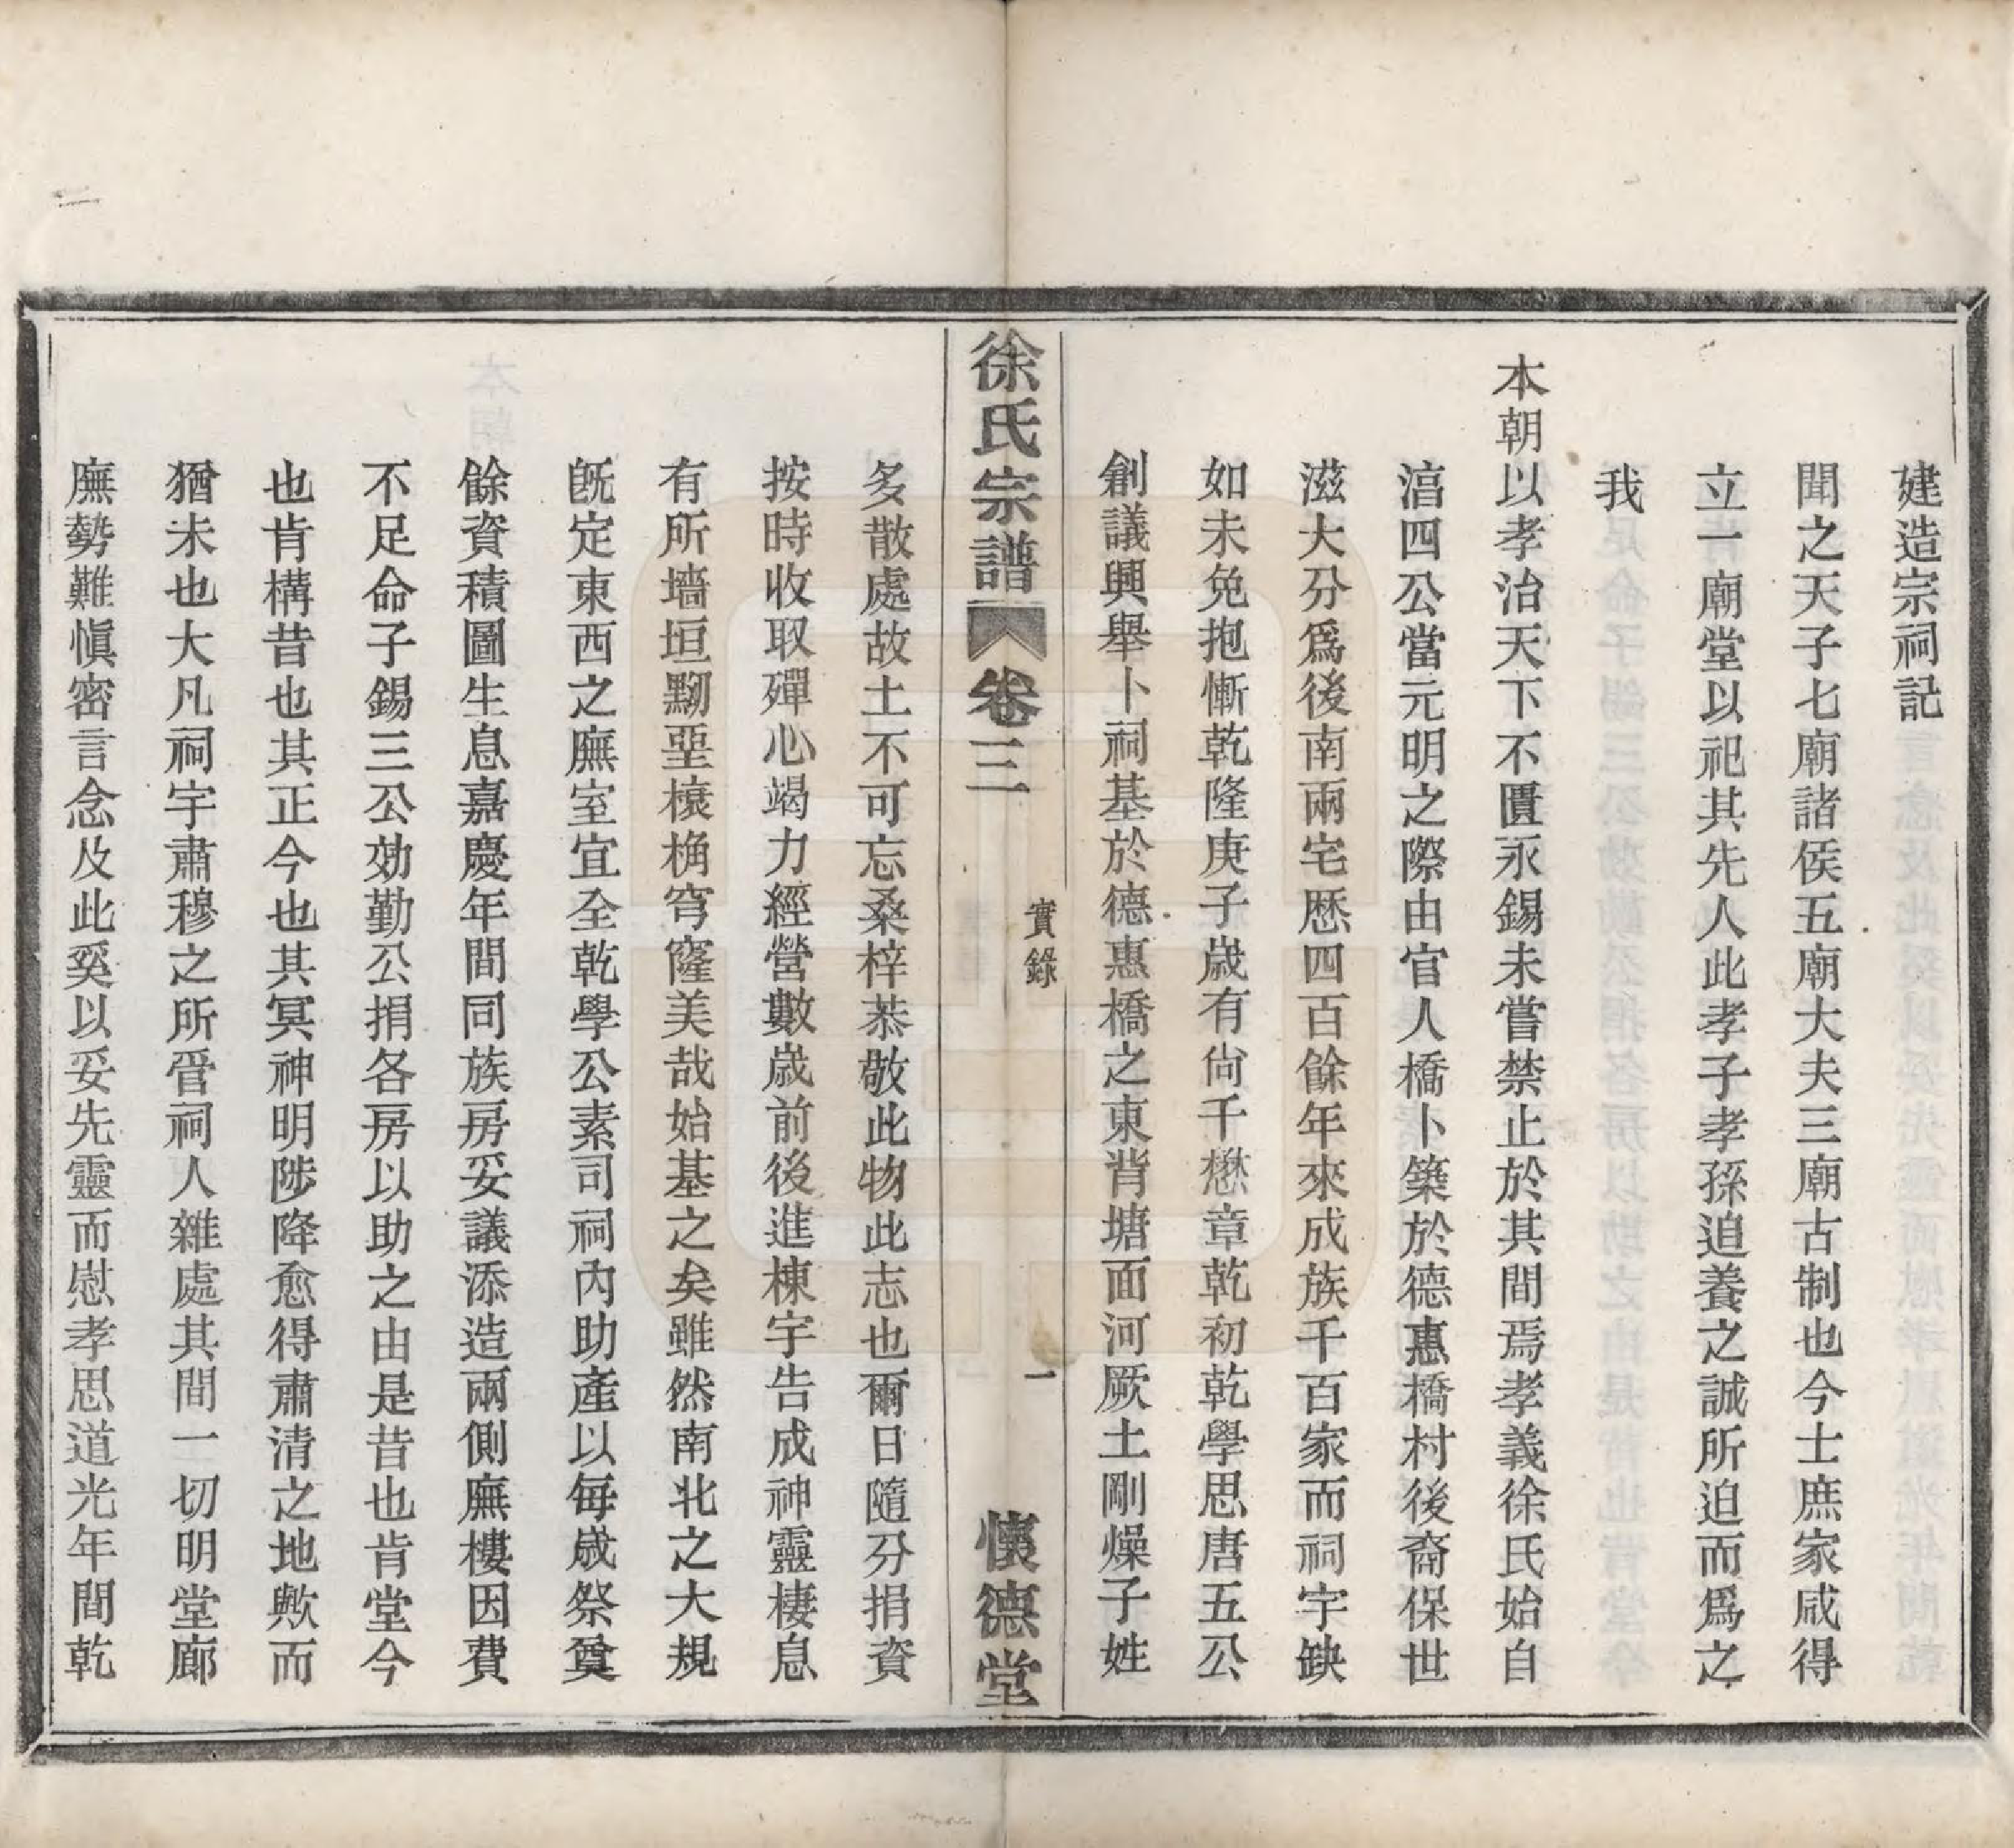 建造宗祠記
聞之天子七廟諸侯五廟大夫三廟古制也今士庶家咸得
立一廟堂以祀其先人此孝子孝孫迫養之誠所迫而爲之
我
本朝以孝治天下不匱永錫未嘗禁止於其間焉孝義徐氏始自
湻四公當元明之際由官人橋卜築於德惠橋村後裔保世
滋大分爲後南兩宅歷四百餘年來成族千百家而祠宇缺
如未免抱慚乾隆庚子歲有尙千懋章乾初乾學思唐五公
創議興舉卜祠基於德惠橋之東背塘面河厥土剛燥子姓
徐氏宗譜
卷三
實錄
一
懷德堂
多散處故土不可忘桑梓恭敬此物此志也爾日隨分捐資
按時收取殫心竭力經營數歲前後進棟宇告成神靈棲息
有所墻垣黝堊榱桷穹窿美哉始基之矣雖然南北之大規
旣定東西之廡室宜全乾學公素司祠內助產以每歲祭奠
餘資積圖生息嘉慶年間同族房妥議添造兩側廡樓因費
不足命子錫三公効勤公捐各房以助之由是昔也肯堂今
也肯構昔也其正今也其冥神明陟降愈得肅清之地歟而
猶未也大凡祠宇肅穆之所管祠人雜處其間一切明堂廊
廡勢難愼密言念及此奚以妥先靈而慰孝思道光年間乾